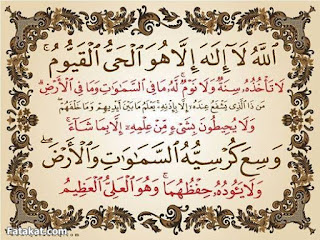 اللَّهُ لَآ إِلَٰهَ إِلَّا هُوَ الْحَىُّ الْقَيُّومُ ۚ
لَا تَأْخُذُهُۥ سِنَةٌ وَلَا نَوْمٌ ۚ لَّهُۥ مَا فِى السَّمَٰوَٰتِ وَمَا فِى الْأَرْضِ ۗ
مَن ذَا الَّذِى يَشْفَعُ عِندَهُۥٓ إِلَّا بِإِذْنِهِۦ ۚ يَعْلَمُ مَا بَيْنَ أَيْدِيهِمْ وَمَا خَلْفَهُمْ ۖ
وَلَا يُحِيطُونَ بِشَىْءٍ مِّنْ عِلْمِهِۦٓ إِلَّا بِمَا شَآءَ ۚ
وَسِعَ كُرْسِيُّهُ السَّمَٰوَٰتِ وَالْأَرْضَ ۖ
وَلَا يَـُٔودُهُۥ حِفْظُهُمَا ۚ وَهُوَ الْعَلِىُّ الْعَظِيمُ
Fatakat.com